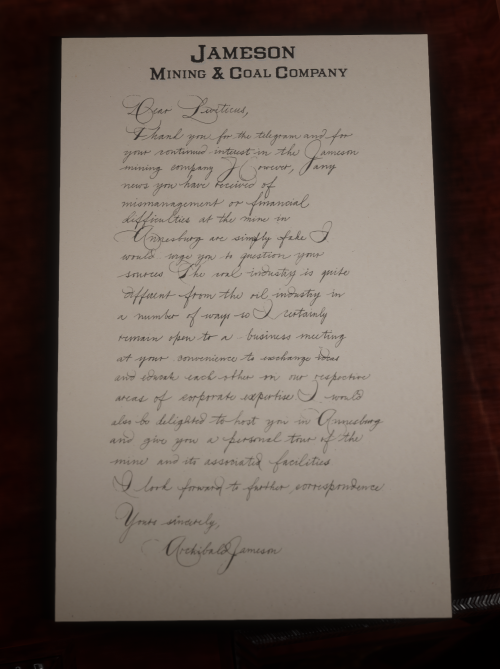 JAMESON
MINING & COAL COMPANY
Dear Leviticus,
Thank you for the telegram and for
your continued interest in the Jameson
mining company However, any
news you have received of
mismanagement or financial
difficulties at the mine in
Annesburg are simply fake I
would urge you to question your
sources The coal industry is quite
different from the oil industry in
a number of ways so I certainly
remain open to a business meeting
at your convenience to exchange ideas
and educate each other on our respective
areas of corporate expertise I would
also be delighted to host you in Annesburg
and give you a personal tour of the
mine and its associated facilities
I look forward to further correspondence
Yours sincerely,
Archibald Jameson